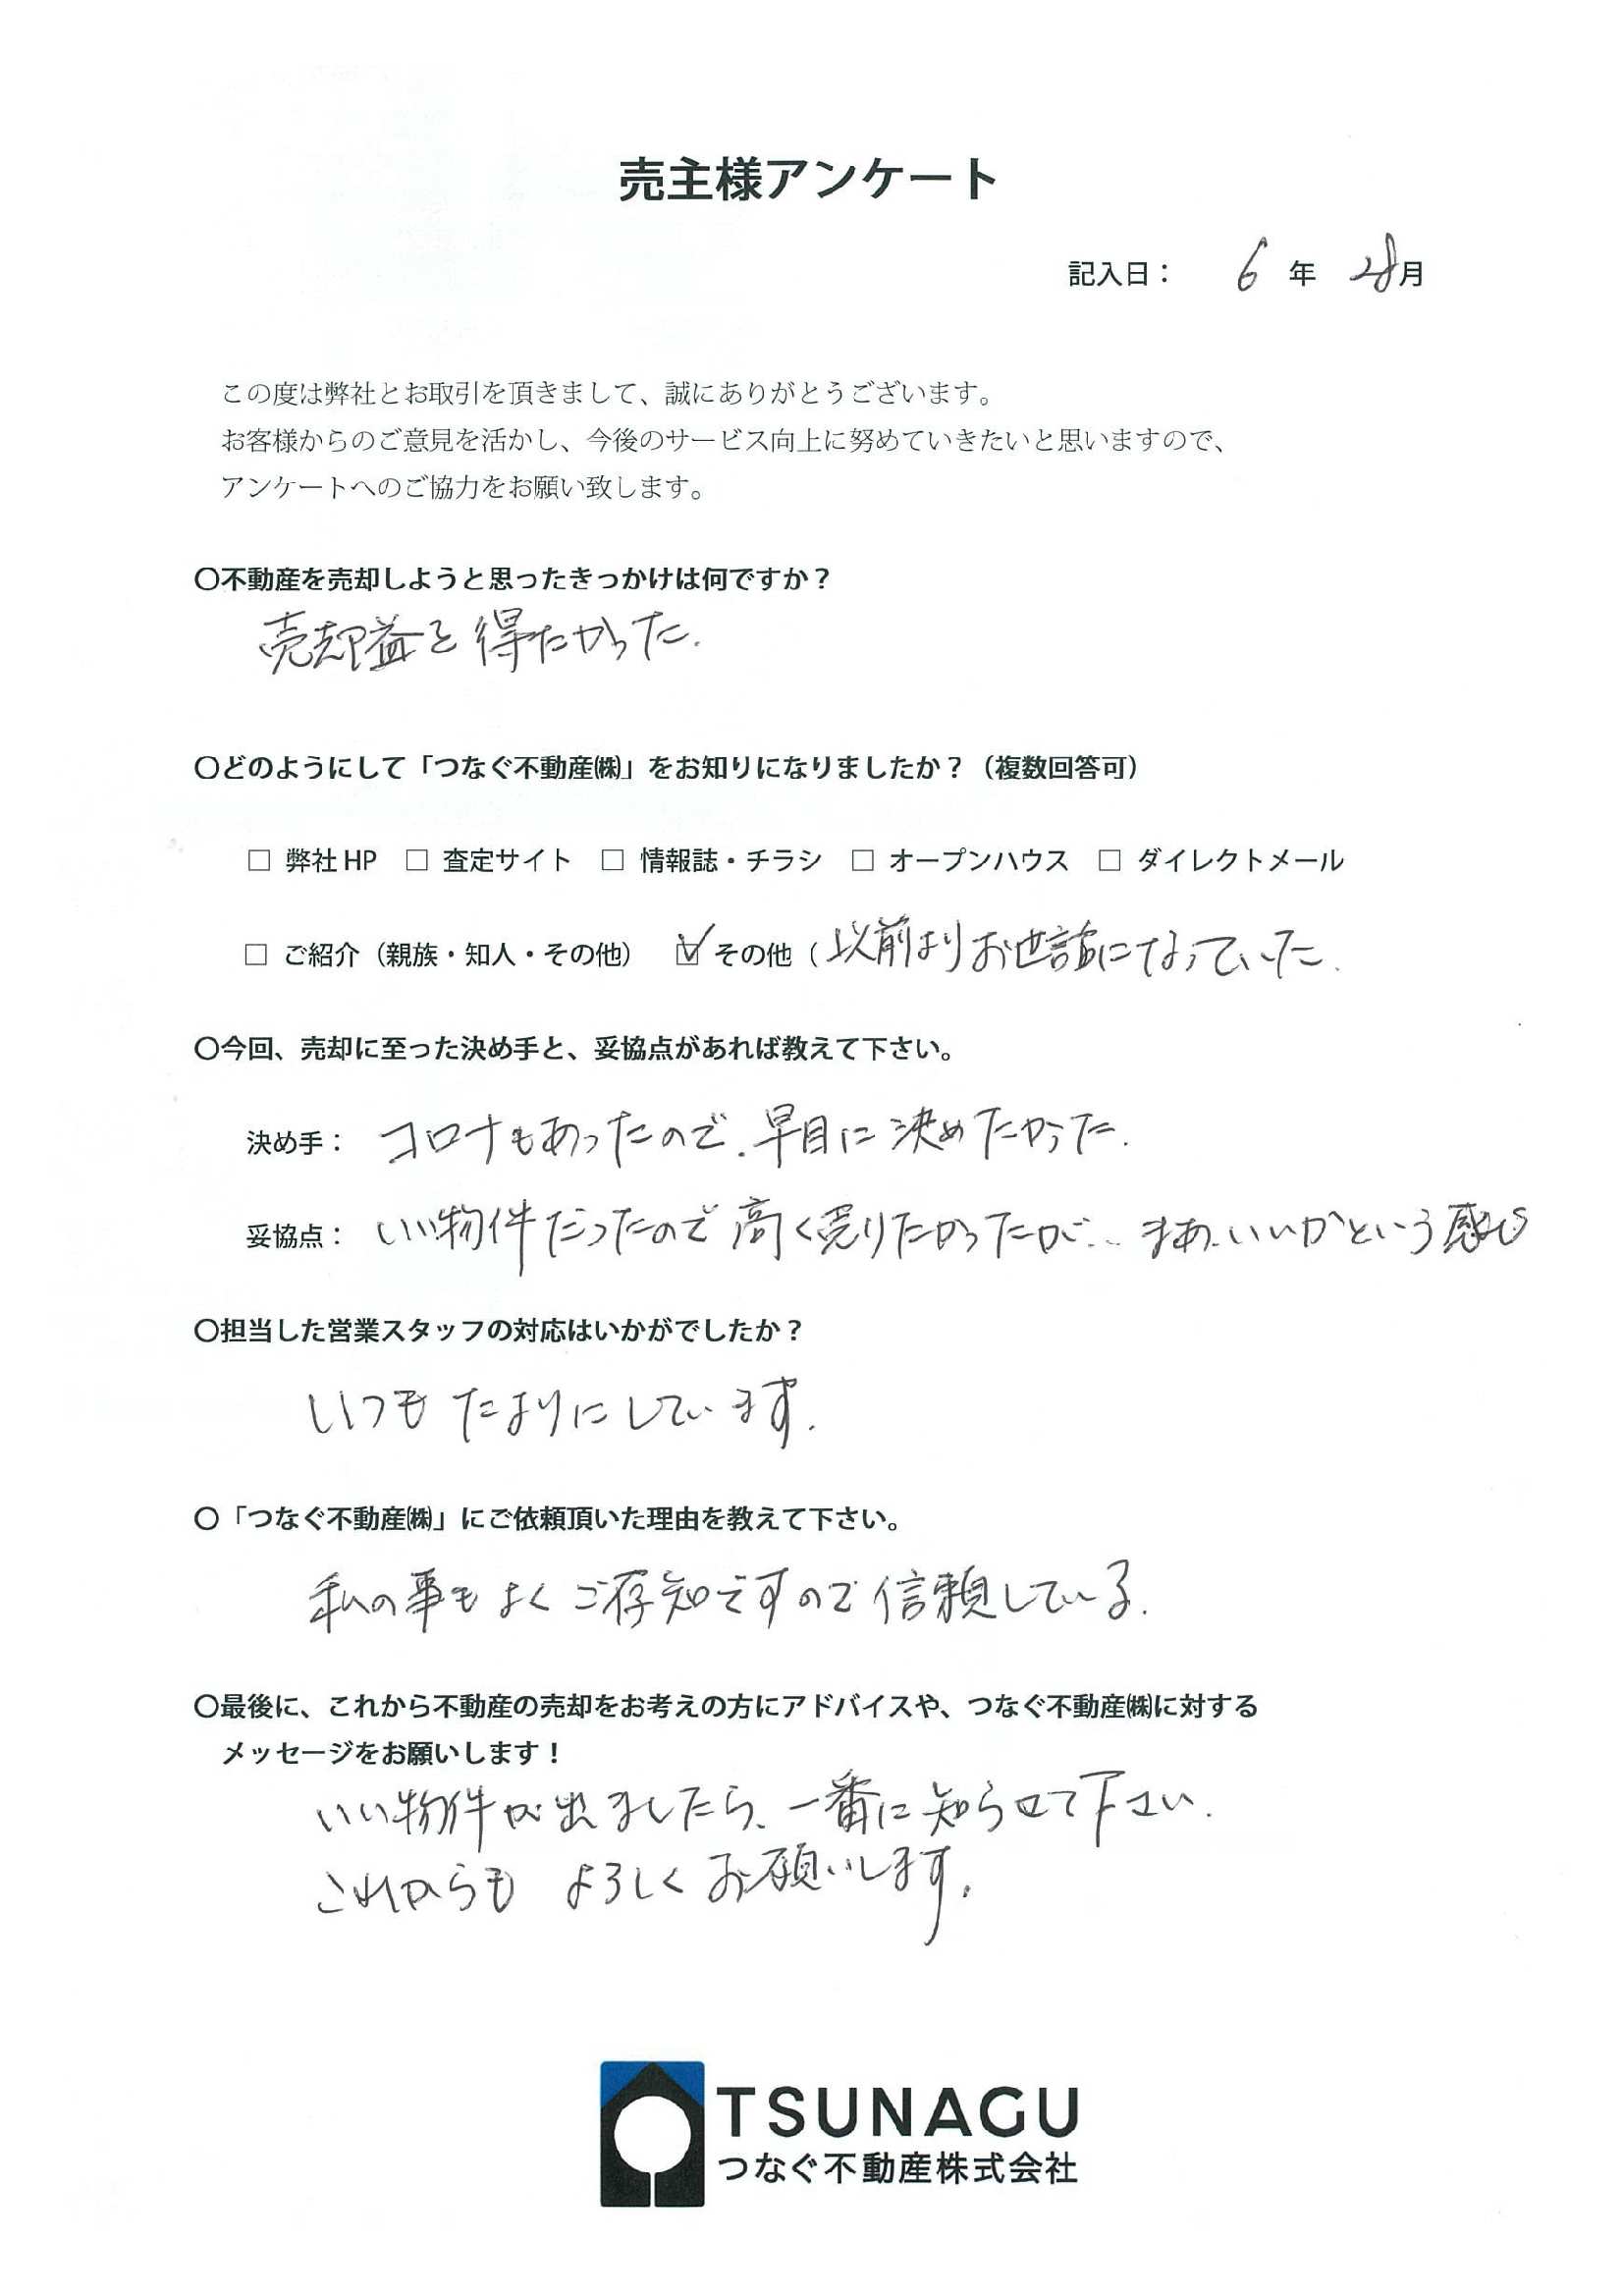 売主様アンケート
記入日： 6 年 28月
この度は弊社とお取引を頂きまして、誠にありがとうございます。
お客様からのご意見を活かし、今後のサービス向上に努めていきたいと思いますので、
アンケートへのご協力をお願い致します。
〇不動産を売却しようと思ったきっかけは何ですか？
売却益を得たかった.
〇どのようにして「つなぐ不動産㈱」をお知りになりましたか？（複数回答可）
□ 弊社HP □ 査定サイト □ 情報誌・チラシ □ オープンハウス □ ダイレクトメール
□ ご紹介（親族・知人・その他） ☑ その他（以前よりお世話になっていた.
〇今回、売却に至った決め手と、妥協点があれば教えて下さい。
決め手： コロナもあったので.早目に決めたかった.
妥協点： いい物件だったので高く売りたかったが... まあ.いいかという感じ
〇担当した営業スタッフの対応はいかがでしたか？
いつもたよりにしています.
〇「つなぐ不動産㈱」にご依頼頂いた理由を教えて下さい。
私の事もよくご存知ですので信頼している.
〇最後に、これから不動産の売却をお考えの方にアドバイスや、つなぐ不動産㈱に対する
メッセージをお願いします！
いい物件が出ましたら、一番に知らせて下さい.
これからも よろしくお願いします。
TSUNAGU
つなぐ不動産株式会社